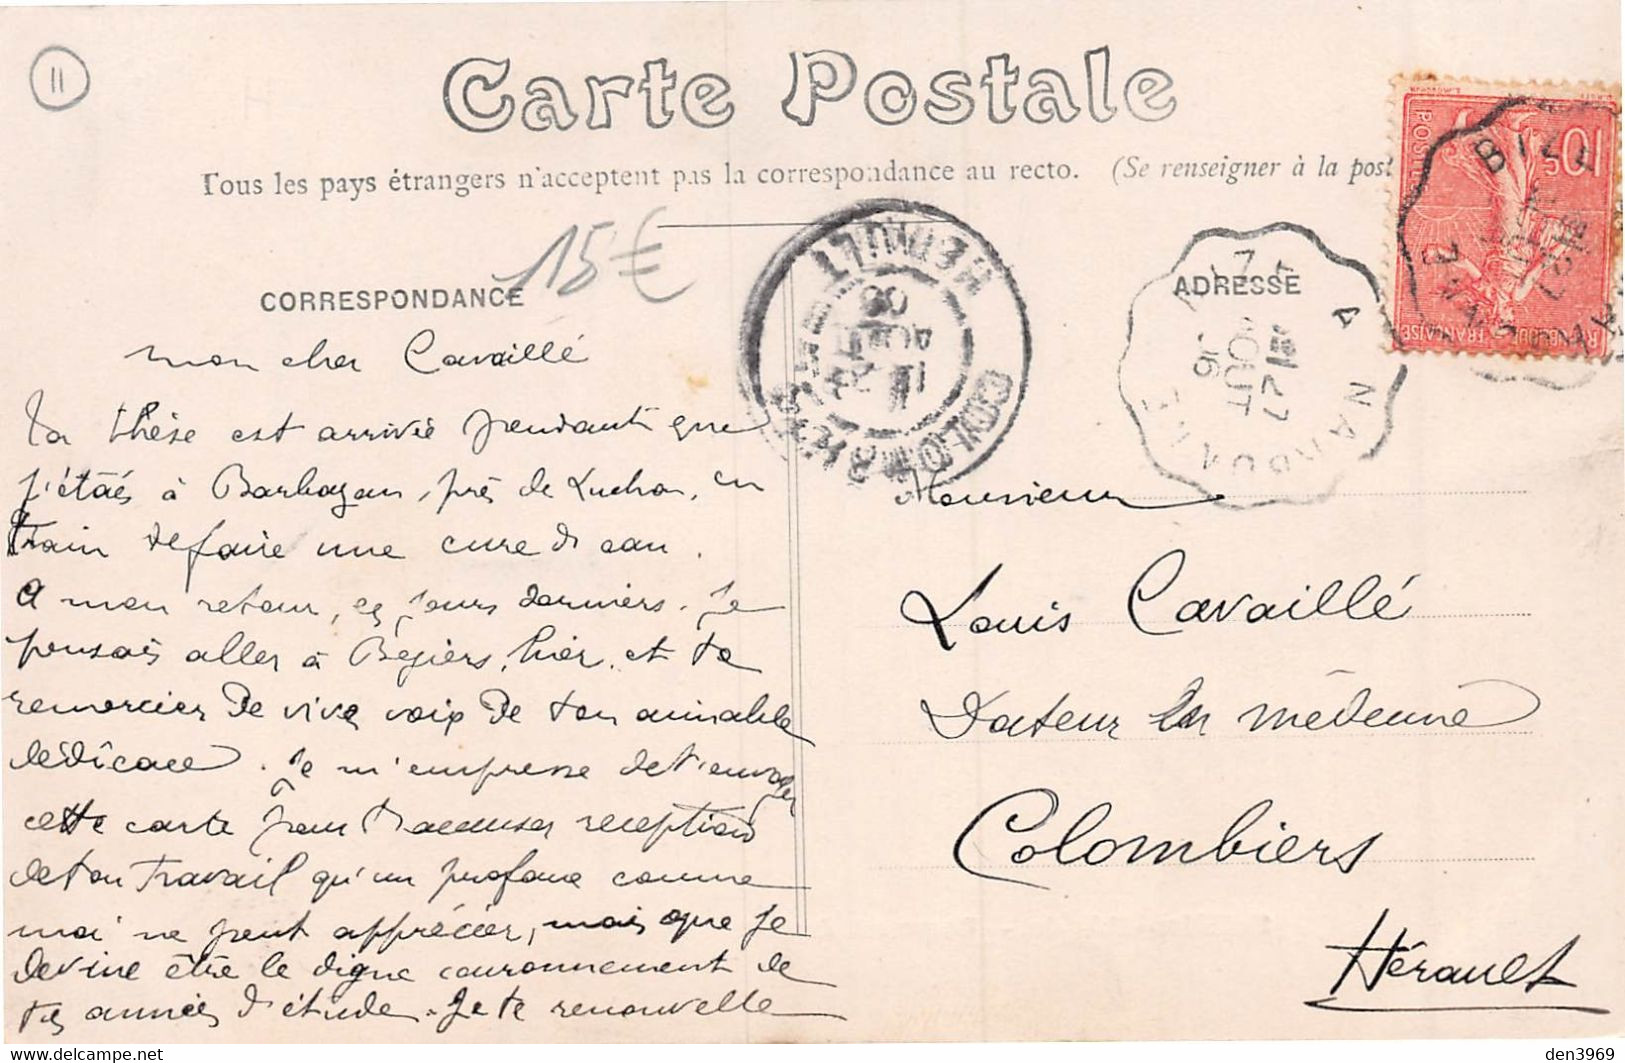 11
Carte Postale
Tous les pays étrangers n'acceptent pas la correspondance au recto. (Se renseigner à la post
15€
CORRESPONDANCE
ADRESSE
mon cher Cavaillé
Ta thèse est arrivée pendant que
j'étais à Barbazan, près de Luchon, en
train de faire une cure d'eau.
A mon retour, ces jours derniers. Je
pensais aller à Béziers, hier, et te
remercier de vive voix de ton aimable
dédicace. Je m'empresse de t'envoyer
cette carte pour t'accuser reception
de ton travail qu'un profane comme
moi ne peut apprécier, mais que je
devine être le digne couronnement de
tes années d'étude. Je te renouvelle
Monsieur
Louis Cavaillé
Docteur en médecine
Colombiers
Hérault
HERAULT
COLOMBIERS
A NARBONNE
27
AOUT
06
10c
POSTES
REPUBLIQUE FRANÇAISE
den3969